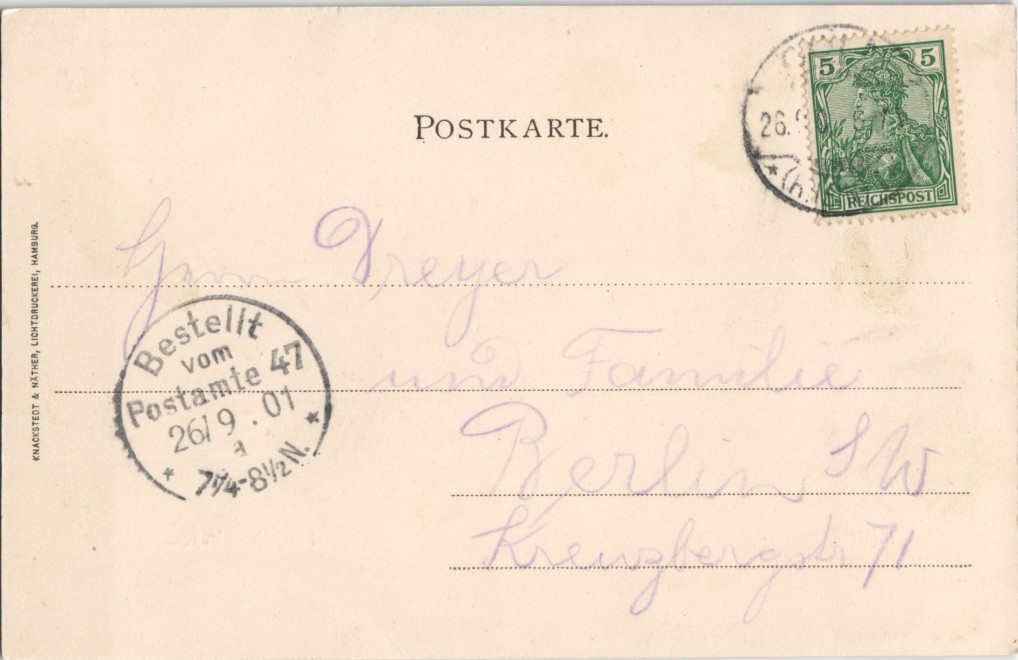 POSTKARTE.
5 5
REICHSPOST
26.
(h.
Herrn Dreyer
und Familie
Berlin SW
Kreuzbergstr 71
Bestellt
vom
Postamte 47
26/9.01
7¼-8½N.
KNACKSTEDT & NÄTHER, LICHTDRUCKEREI, HAMBURG.